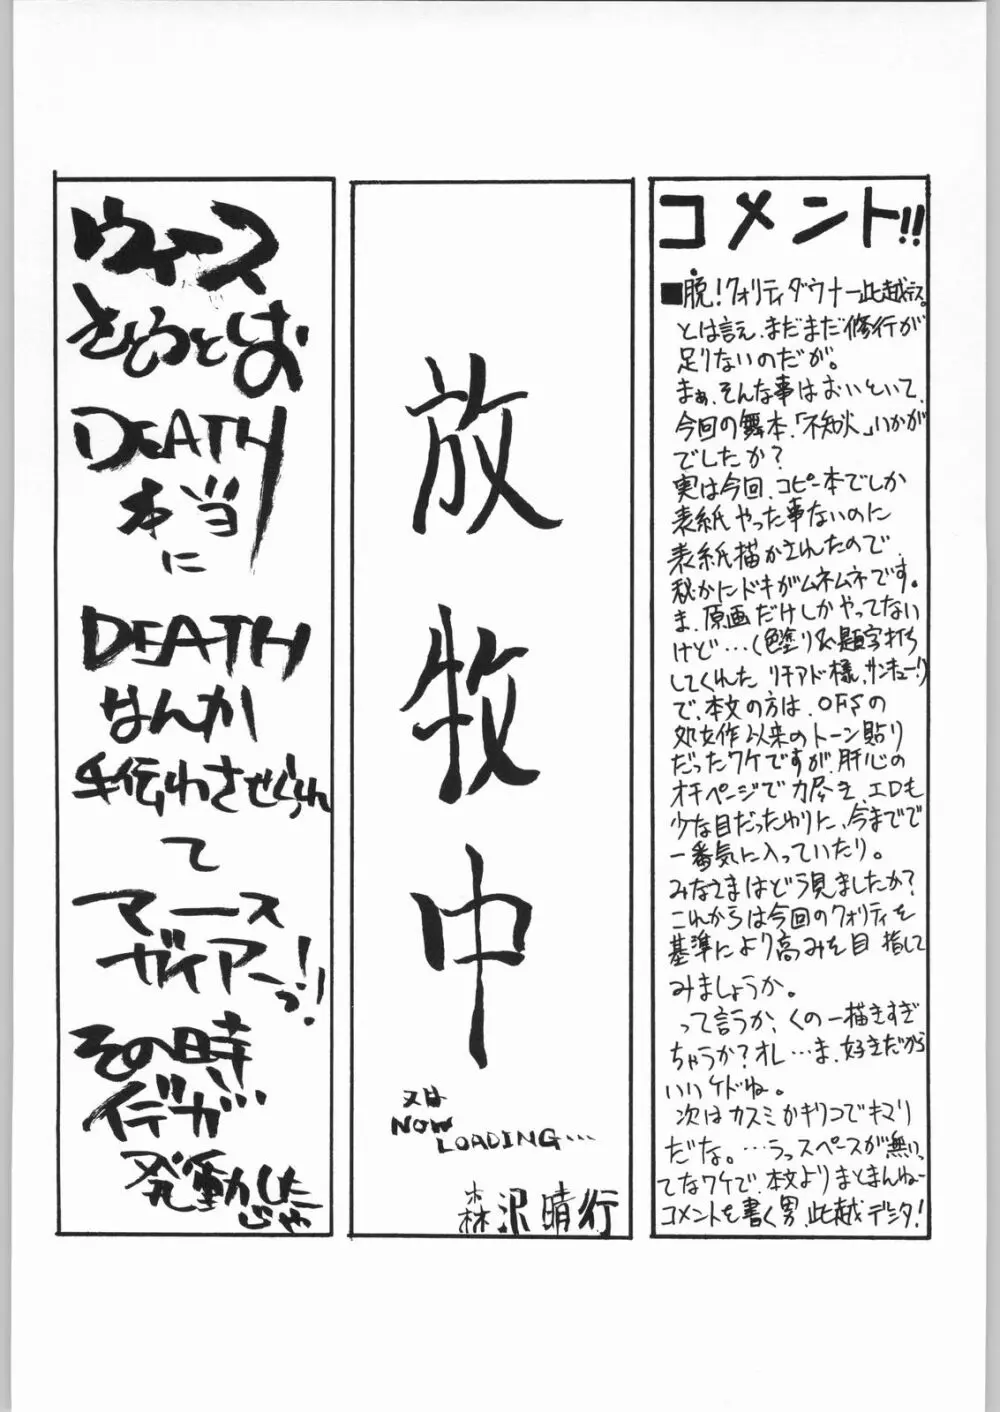 コメント!!
■脱!クォリティダウナー此越デス。
とは言え、まだまだ修行が
足りないのだが。
まぁ、そんな事はおいといて、
今回の舞本、「不知火」いかが
でしたか?
実は今回、コピー本でしか
表紙やった事ないのに
表紙描かされたので、
秘かにドキがムネムネです。
ま、原画だけしかやってない
けど…(色塗り&題字打ち
してくれた リチアド様、サンキュー!)
で、本文の方は、OFSの
処女作以来のトーン貼り
だったワケですが、肝心の
オチページで力尽き、エロも
少な目だったわりに、今までで
一番気に入っていたり。
みなさまはどう見ましたか?
これからは今回のクォリティを
基準により高みを目指して
みましょうか。
って言うか、くの一描きすぎ
ちゃうか?オレ…ま、好きだから
いいケドね。
次はカスミかキリコでキマリ
だな。…うっスペースが無いっ
てなワケで、本文よりまとまんねー
コメントを書く男、此越デシタ!
放牧中
又は
NOW
LOADING…
森沢晴行
ウィース
さとうとしお
DEATH
本当
に
DEATH
なんか
手伝わさせられ
て
マース
ガイアーっ!!
その時
イデが…
発動した
じゃ